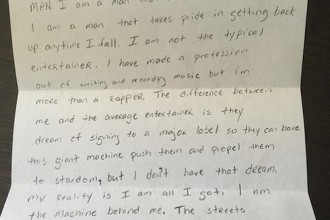 MAN. I am a man tha
I am a man that takes pride in getting back
up anytime I fall. I am not the typical
entertainer. I have made a profession
out of writing and recording music but I'm
more than a rapper The difference between
me and the average entertainer is they
dream of signing to a major label so they can have
this giant machine push them and propel them
to stardom, but I don't have that dream.
my reality is I am all I got. I am
the machine behind me. The streets